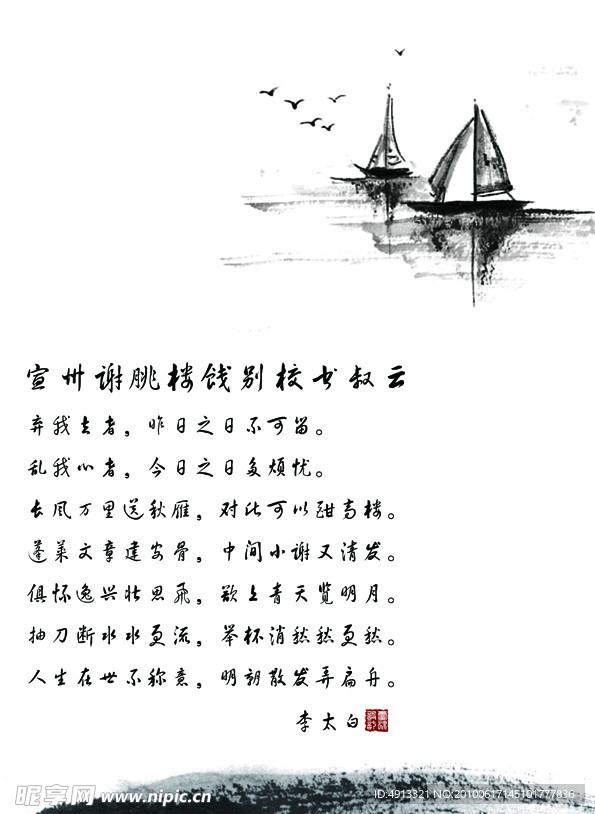 宣州谢朓楼饯别校书叔云
弃我去者，昨日之日不可留。
乱我心者，今日之日多烦忧。
长风万里送秋雁，对此可以酣高楼。
蓬莱文章建安骨，中间小谢又清发。
俱怀逸兴壮思飞，欲上青天览明月。
抽刀断水水更流，举杯消愁愁更愁。
人生在世不称意，明朝散发弄扁舟。
李太白
昵享网 www.nipic.cn
ID:4913321 NO:20100617145101777836